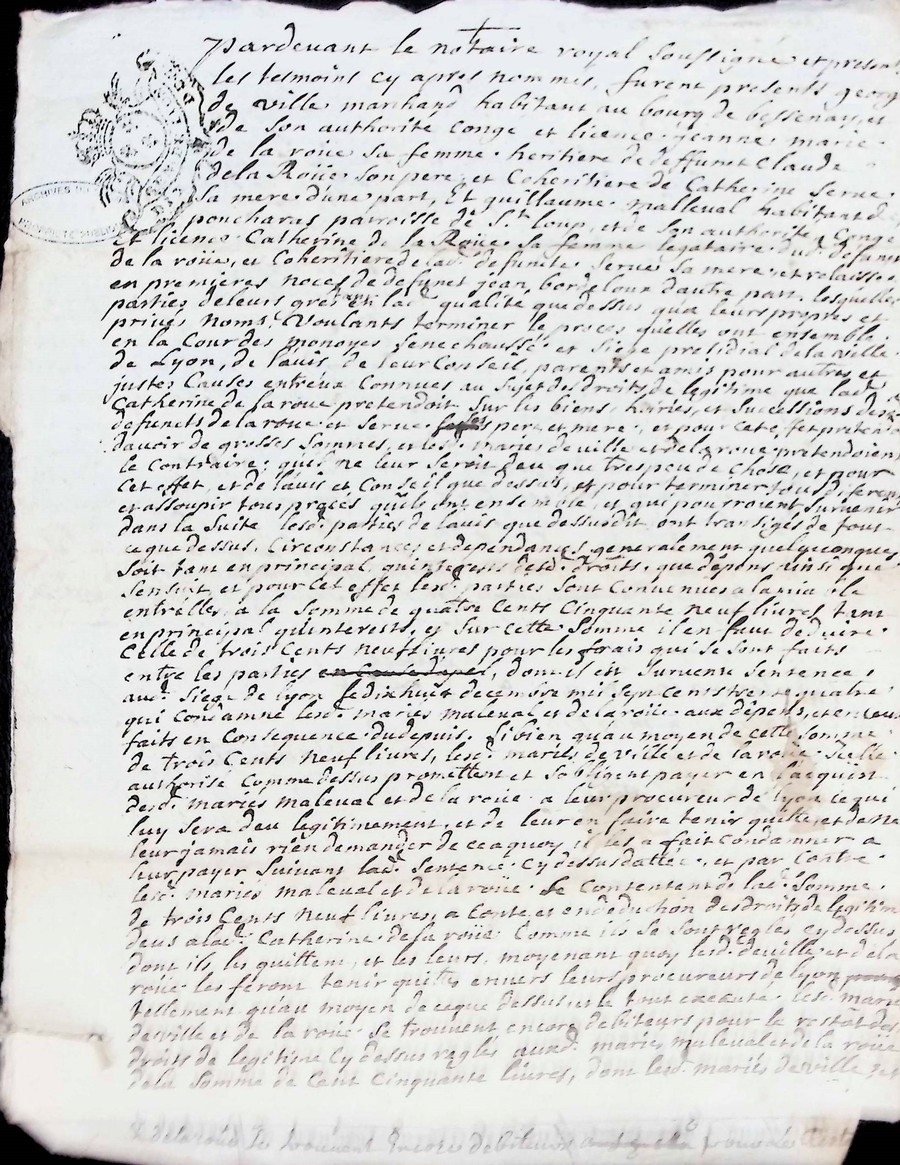 pardevant le notaire royal soussigné et presents
les tesmoins cy apres nommes, furent presents george
de ville marchand habitant au bourg de bessenay, et
de son authorité conge et licence jeanne marie
de la roüe sa femme heritiere de deffunt Claude
de la Roüe son pere, et Coheritiere de Catherine Serve
sa mere d'une part, Et guillaume malleval habitant de
poncharas parroisse de St. loup, et de son authorité Conge
Et licence Catherine de la Roüe sa femme legataire dud. defunt
de la roüe, et Coheritiere de lad. defunte Serve sa mere et relaisse
en premieres noces de defunct jean bordelour d'autre part, lesquelles
parties de leurs grés en lad. qualité que dessus qua leurs propres et
privés noms, Voulants terminer le proces quelles ont ensemble
en la Cour des monoyes Senechaussé et Siege presidial de la ville
de Lyon, de lauis de leur Conseil, parents et amis pour autres et
justes Causes entreux Connues au Sujet des droits de legitime que lad.
Catherine de la roue pretendoit sur les biens, hoiries, et Successions des
defuncts de la roue et Serve ses pere et mere, et pour cet effet pretendoit
dauoir de grosses Sommes, et lesd. maries de ville et de la roue pretendoient
le Contraire, quil ne leur Seroit deu que tres peu de Chose, et pour
Cet effet, et de lauis et Conseil que dessus, et pour terminer tous diferents
et assoupir tous procés quils ont ensemble, et qui pourroient Survenir
dans la Suite lesd. parties de lauis que dessus dit, ont transigés de tout
ce que dessus, Circonstances et dependances generalement quelqueconques
Soit tant en principal, quinterests desd. droits, que depens ainsi que
Sensuit, et pour Cet effet lesd. parties Sont Convenues a lamiable
entrelles, a la Somme de quatre Cents Cinquante neuf livres tant
en principal quinterests, et Sur cette Somme il en faut deduire
Celle de trois Cents neuf livres pour les frais qui se Sont faits
entre les parties en Cause d'apel, dont il est Survenu Sentence
aud. Siege de lyon le dix huit decembre mil Sept Cents trente quatre
qui Condamne lesd. maries maleval et de la roüe aux depens, et en ceux
faits en Consequence du depuis. Si bien qu'au moyen de cette Somme
de trois Cents neuf livres, lesd. mariés de ville et de la roüe Se
authorisé Comme dessus promettent et Sobligent payer en lacquit
desd. maries maleval et de la roüe a leur procureur de lyon ce qui
luy Sera deu legitimement, et de leur en faire tenir quitte, et de ne
leur jamais rien demander de ce a quoy il les a fait Condamner a
leur payer Suivant lad. Sentence Cy dessus dattée, et par Contre
lesd. maries maleval et de la roüe Se Contentent de lad. Somme
de trois Cents neuf livres, a Conte et en deduction des droits de legitime
deus a lad. Catherine de la roüe Comme ils Se Sont reglés cy dessus
dont ils les quittent, et les leurs, moyenant quoy lesd. de ville et de la
roüe les feront tenir quittes envers leurs procureurs de lyon
tellement qu'au moyen de ce que dessus et le tout execute lesd. maries
de ville et de la roüe se trouvent encore debiteurs pour le restat des
droits de legitime Cy dessus reglés auxd. maries maleval et de la roüe
de la Somme de Cent Cinquante livres, dont lesd. mariés de ville et